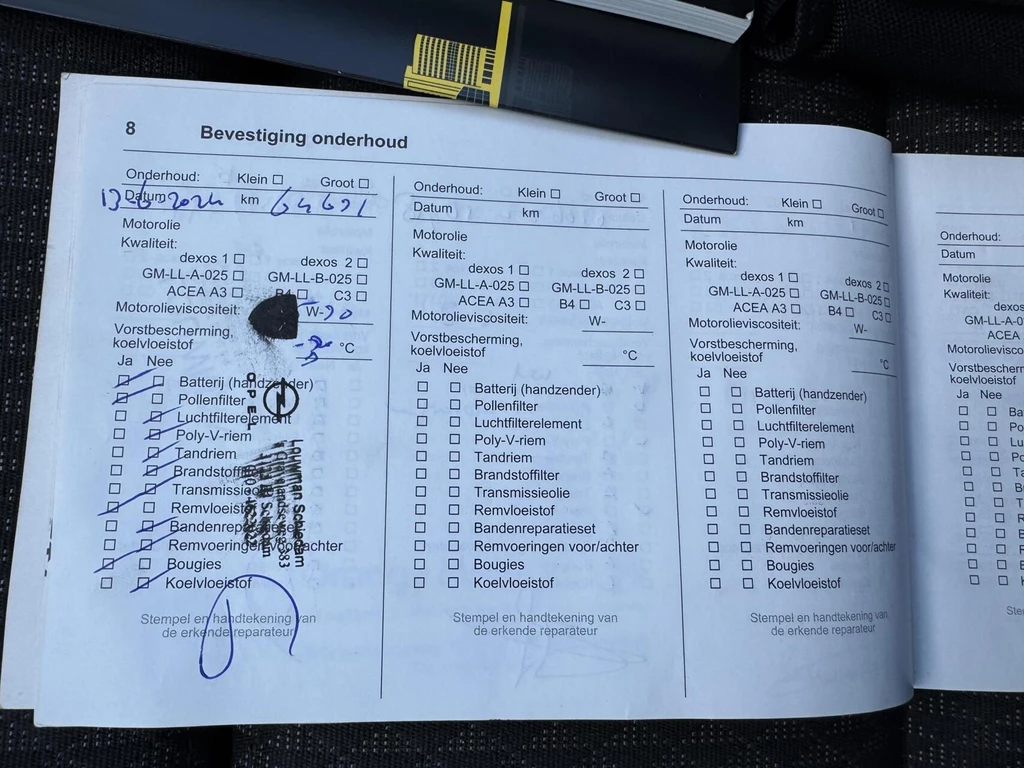 8 Bevestiging onderhoud
Onderhoud: Klein Groot
Datum 13-6-2024 km 64691
Motorolie
Kwaliteit:
dexos 1 dexos 2
GM-LL-A-025 GM-LL-B-025
ACEA A3 B4 C3
Motorolieviscositeit: W-
Vorstbescherming,
koelvloeistof °C
Ja Nee
Batterij (handzender)
Pollenfilter
Luchtfilterelement
Poly-V-riem
Tandriem
Brandstoffilter
Transmissieolie
Remvloeistof
Bandenreparatieset
Remvoeringen voor/achter
Bougies
Koelvloeistof
OPEL
Louwman Schiedam
Stempel en handtekening van
de erkende reparateur
Onderhoud: Klein Groot
Datum km
Motorolie
Kwaliteit:
dexos 1 dexos 2
GM-LL-A-025 GM-LL-B-025
ACEA A3 B4 C3
Motorolieviscositeit: W-
Vorstbescherming,
koelvloeistof °C
Ja Nee
Batterij (handzender)
Pollenfilter
Luchtfilterelement
Poly-V-riem
Tandriem
Brandstoffilter
Transmissieolie
Remvloeistof
Bandenreparatieset
Remvoeringen voor/achter
Bougies
Koelvloeistof
Stempel en handtekening van
de erkende reparateur
Onderhoud: Klein Groot
Datum km
Motorolie
Kwaliteit:
dexos 1 dexos 2
GM-LL-A-025 GM-LL-B-025
ACEA A3 B4 C3
Motorolieviscositeit: W-
Vorstbescherming,
koelvloeistof °C
Ja Nee
Batterij (handzender)
Pollenfilter
Luchtfilterelement
Poly-V-riem
Tandriem
Brandstoffilter
Transmissieolie
Remvloeistof
Bandenreparatieset
Remvoeringen voor/achter
Bougies
Koelvloeistof
Stempel en handtekening van
de erkende reparateur
Onderhoud:
Datum
Motorolie
Kwaliteit:
dexos
GM-LL-A-0
ACEA
Motorolievisco
Vorstbescherm
koelvloeistof
Ja Nee